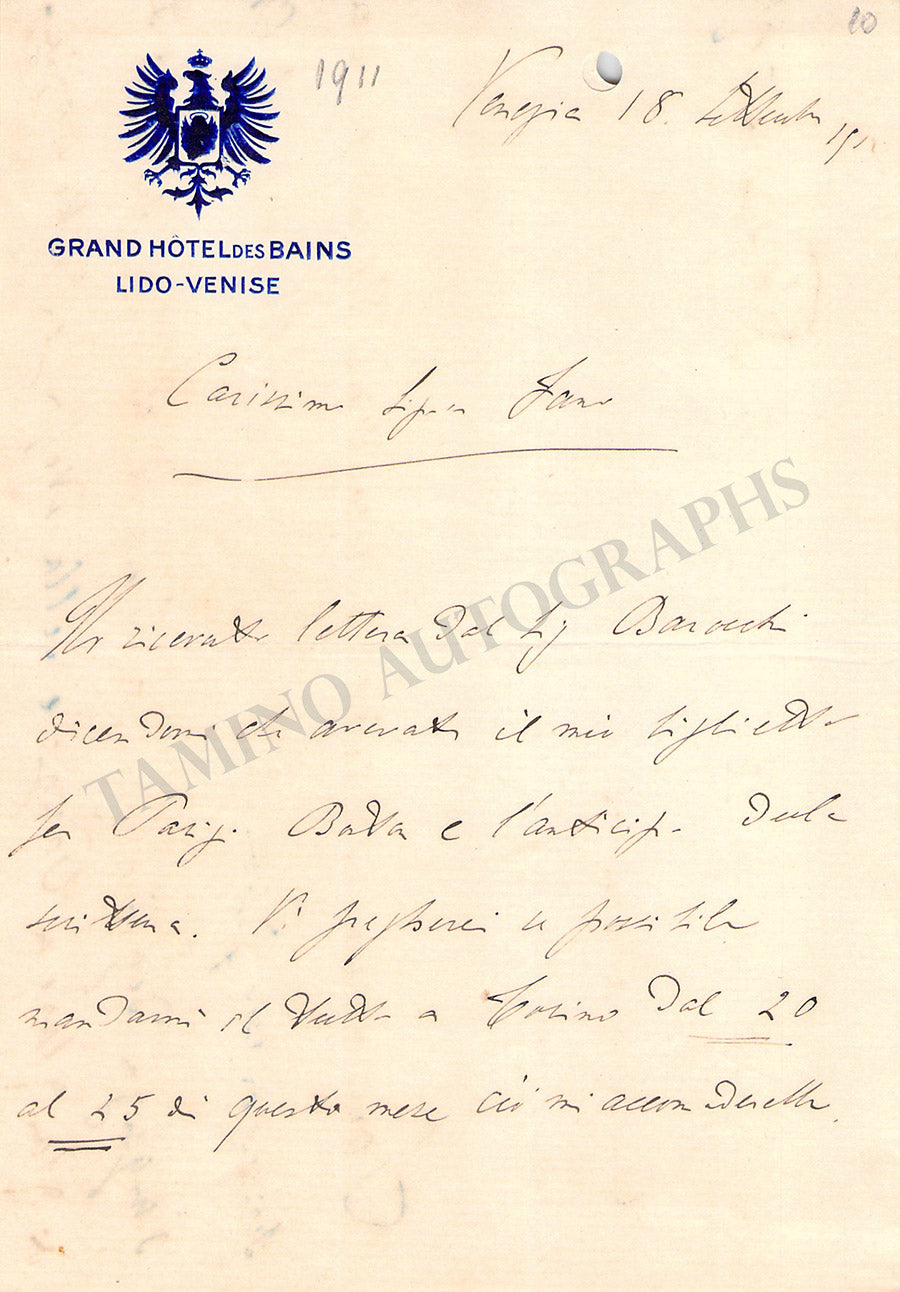 10
1911
Venezia 18. Settembre 1911
GRAND HÔTEL DES BAINS
LIDO-VENISE
Carissimo Signor Fano
Ho ricevuto lettera dal Sig Barocchi
dicendomi che avevate il mio biglietto
per Parigi Boston e l'anticipo della
scrittura. Vi pregherei se possibile
mandarmi il tutto a Torino dal 20
al 25 di questo mese ciò mi accomoderebbe
TAMINO AUTOGRAPHS